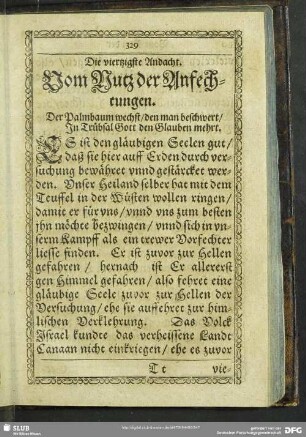 329
Die viertzigste Andacht.
Vom Nutz der Anfech-
tungen.
Der Palmbaum wechst/den man beschwert/
In Trübsal Gott den Glauben mehrt.
ES ist den gläubigen Seelen gut/
daß sie hier auff Erden durch ver-
suchung bewähret vnnd gestärcket wer-
den. Vnser Heiland selber hat mit dem
Teuffel in der Wüsten wollen ringen/
damit er für vns/ vnnd vns zum besten
jhn möchte bezwingen/ vnnd sich in vn-
serm Kampff als ein trewer Vorfechter
liesse finden. Er ist zuvor zur Hellen
gefahren/ hernach ist Er allererst
gen Himmel gefahren/ also fehret eine
gläubige Seele zuvor zur Hellen der
Versuchung/ ehe sie auffehret zur him-
lischen Verklehrung. Das Volck
Israel kundte das verheissene Landt
Canaan nicht einkriegen/ ehe es zuvor
T t
vie-
SLUB
Wir führen Wissen.
gefördert von der
Deutschen Forschungsgemeinschaft
DFG